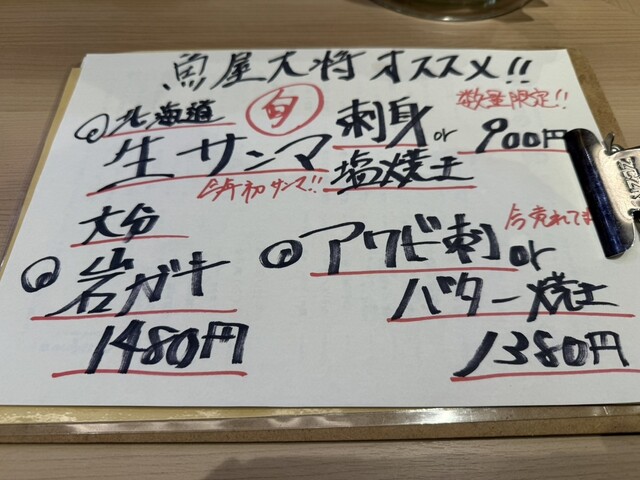 魚屋大将オススメ!!
北海道 旬 刺身or 数量限定!! 900円
生サンマ 塩焼き
今年初サンマ!!
大分
岩ガキ
1480円
今売れてま
アワビ刺or
バター焼き
1380円